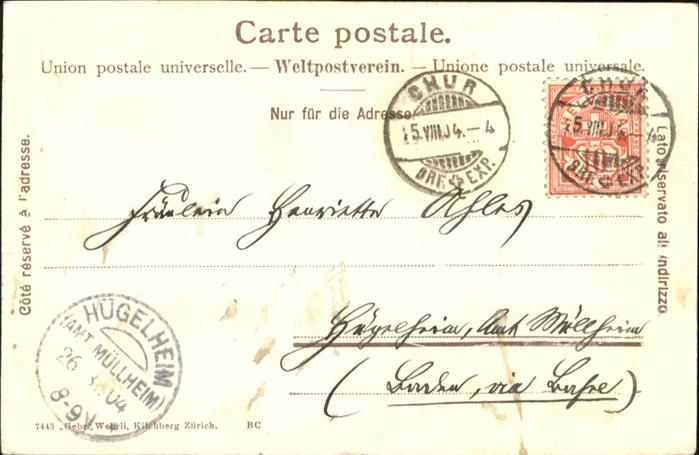 Carte postale.
Union postale universelle. — Weltpostverein. — Unione postale universale.
Nur für die Adresse
CHUR
25.VIII.04.–4
BRF. EXP.
CHUR
25.VIII.04.–4
BRF. EXP.
10
Côté réservé à l'adresse.
Lato riservato all'indirizzo
Fräulein Henriette Ahles
Hügelheim, Amt Müllheim
(Baden, via Basel)
HÜGELHEIM
(AMT MÜLLHEIM)
26. 04
8-9V
7443 Gebr. Wehrli, Kilchberg Zürich. BC